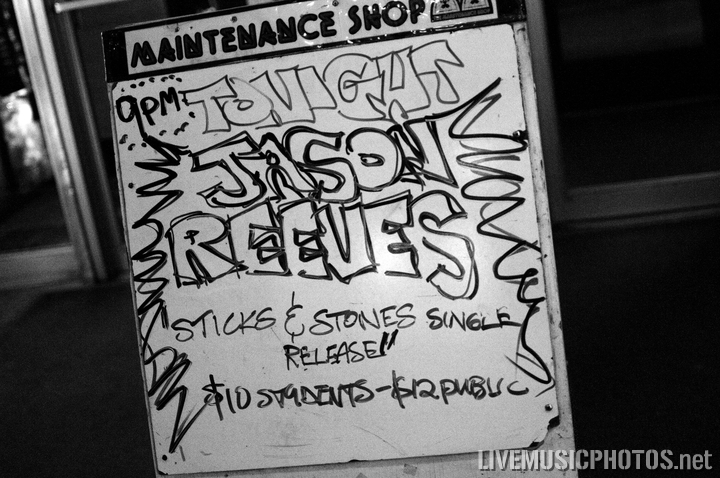 MAINTENANCE SHOP
9PM TONIGHT
JASON
REEVES
"STICKS & STONES SINGLE
RELEASE"
$10 STUDENTS - $12 PUBLIC
LIVEMUSICPHOTOS.net